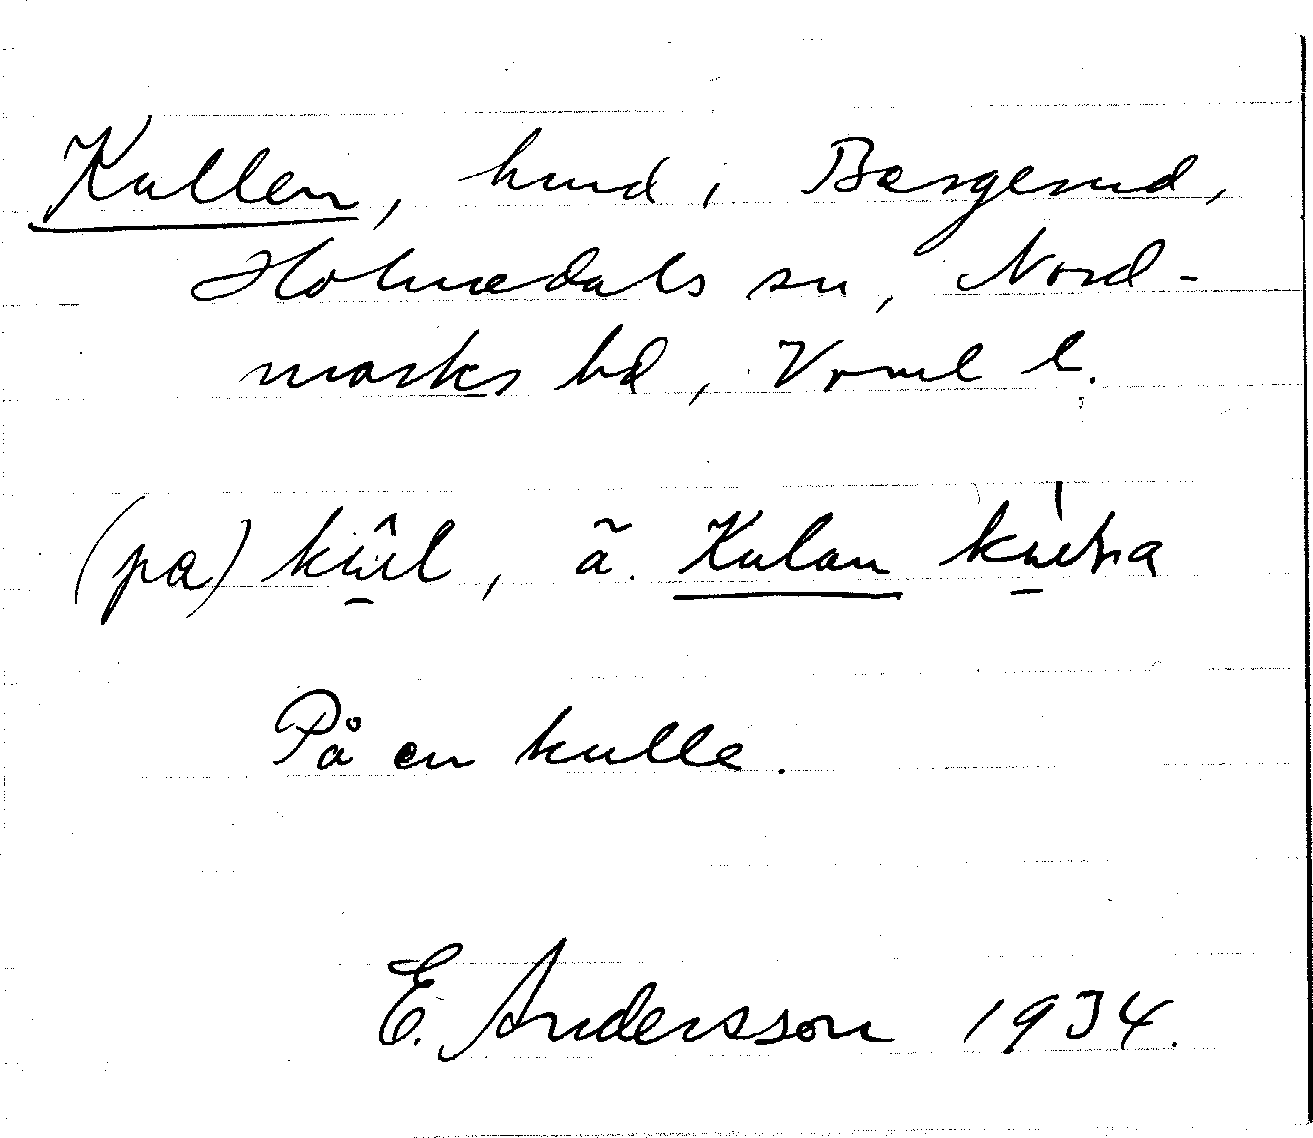 Kullen, hmd i Bergerud,
Holmedals sn, Nord-
marks hd, Vrml l.
(pa) kûl, ã. Kulan
På en kulle.
E. Andersson 1934.